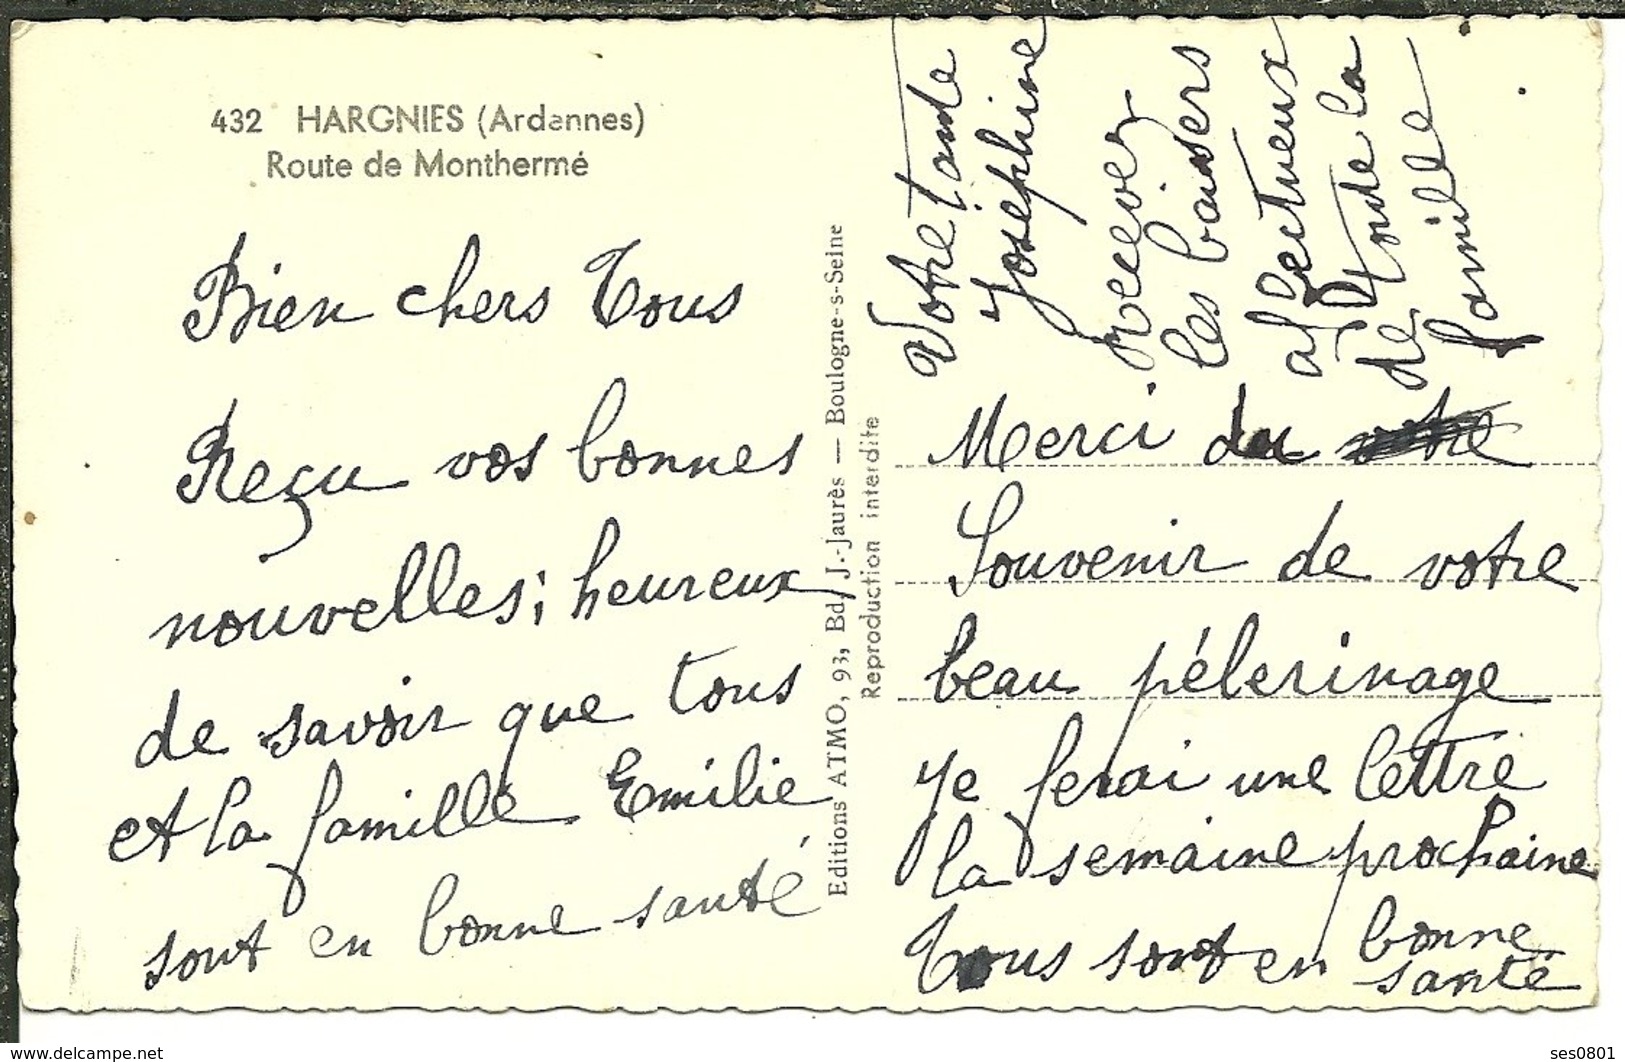 432 HARGNIES (Ardennes)
Route de Monthermé
Bien chers Tous
Reçu vos bonnes
nouvelles; heureux
de savoir que tous
et la famille Emilie
sont en bonne santé
Editions ATMO, 93, Bd J.-Jaurès — Boulogne-s-Seine
Reproduction interdite
Merci du
Souvenir de votre
beau pélerinage
Je ferai une lettre
la semaine prochaine
Tous sont en bonne
santé
Recever
les baisers
affectueux
de
Toute la
famille
Votre tante
Joséphine
delcampe.net
ses0801